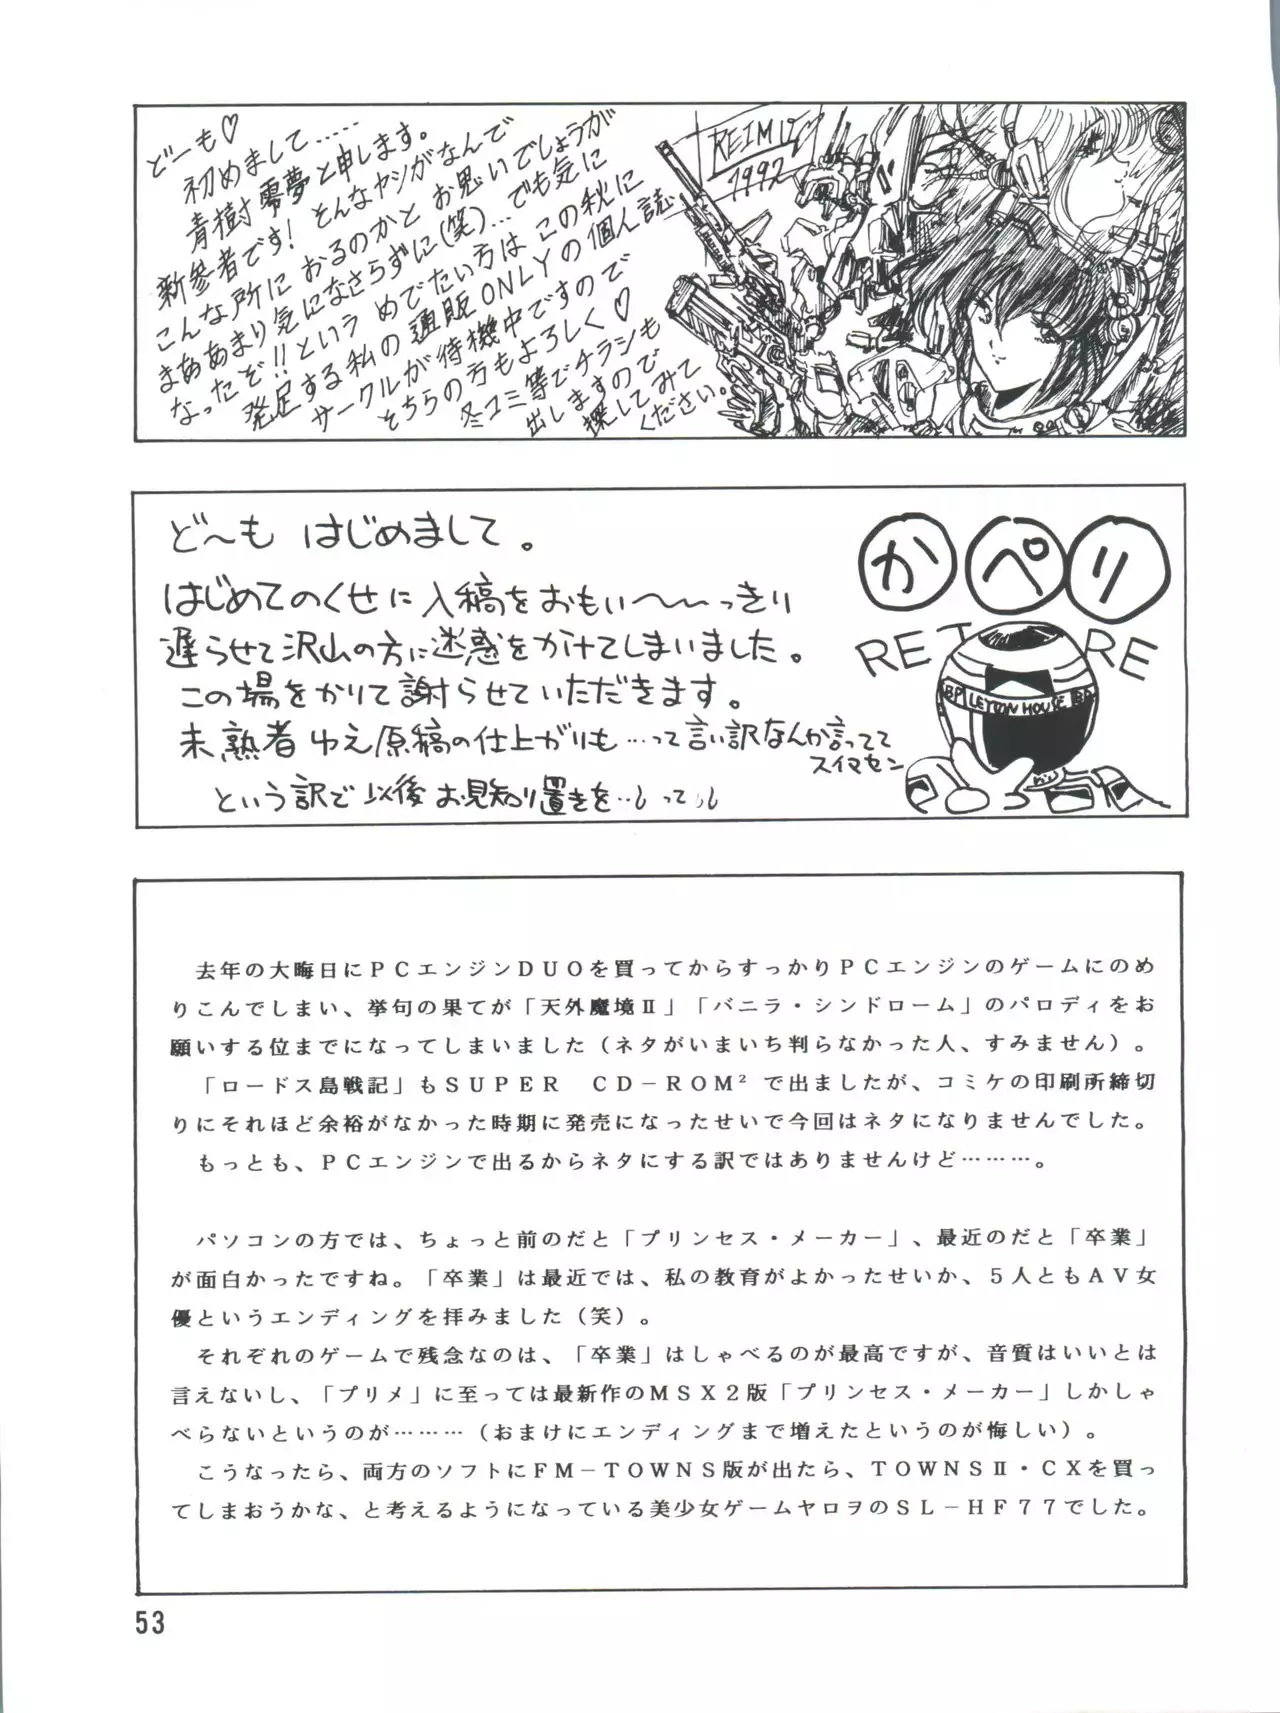 どーも♡
初めまして……
青樹零夢と申します。
新参者です！そんなヤツがなんで
こんな所におるのかとお思いでしょうが
まああまり気になさらずに(笑)…でも気に
なったぞ!!というめでたい方はこの秋に
発足する私の通販ONLYの個人誌
サークルが待機中ですので
そちらの方もよろしく♡
冬コミ等でチラシも
出しますので
探してみて
ください。
REIMU
1992
ど〜も はじめまして。
はじめてのくせに入稿をおもい〜〜っきり
遅らせて沢山の方に迷惑をかけてしまいました。
この場をかりて謝らせていただきます。
未熟者ゆえ原稿の仕上がりも…って言い訳なんか言ってて
スイマセン
という訳で以後お見知り置きを…って
かぺり
RETIRE
BP LEYTON HOUSE BP
　去年の大晦日にＰＣエンジンＤＵＯを買ってからすっかりＰＣエンジンのゲームにのめ
りこんでしまい、挙句の果てが「天外魔境Ⅱ」「バニラ・シンドローム」のパロディをお
願いする位までになってしまいました（ネタがいまいち判らなかった人、すみません）。
　「ロードス島戦記」もＳＵＰＥＲ　ＣＤ－ＲＯＭ²で出ましたが、コミケの印刷所締切
りにそれほど余裕がなかった時期に発売になったせいで今回はネタになりませんでした。
　もっとも、ＰＣエンジンで出るからネタにする訳ではありませんけど………。
　パソコンの方では、ちょっと前のだと「プリンセス・メーカー」、最近のだと「卒業」
が面白かったですね。「卒業」は最近では、私の教育がよかったせいか、５人ともＡＶ女
優というエンディングを拝みました（笑）。
　それぞれのゲームで残念なのは、「卒業」はしゃべるのが最高ですが、音質はいいとは
言えないし、「プリメ」に至っては最新作のＭＳＸ２版「プリンセス・メーカー」しかしゃ
べらないというのが………（おまけにエンディングまで増えたというのが悔しい）。
　こうなったら、両方のソフトにＦＭ－ＴＯＷＮＳ版が出たら、ＴＯＷＮＳⅡ・ＣＸを買っ
てしまおうかな、と考えるようになっている美少女ゲームヤロヲのＳＬ－ＨＦ７７でした。
53